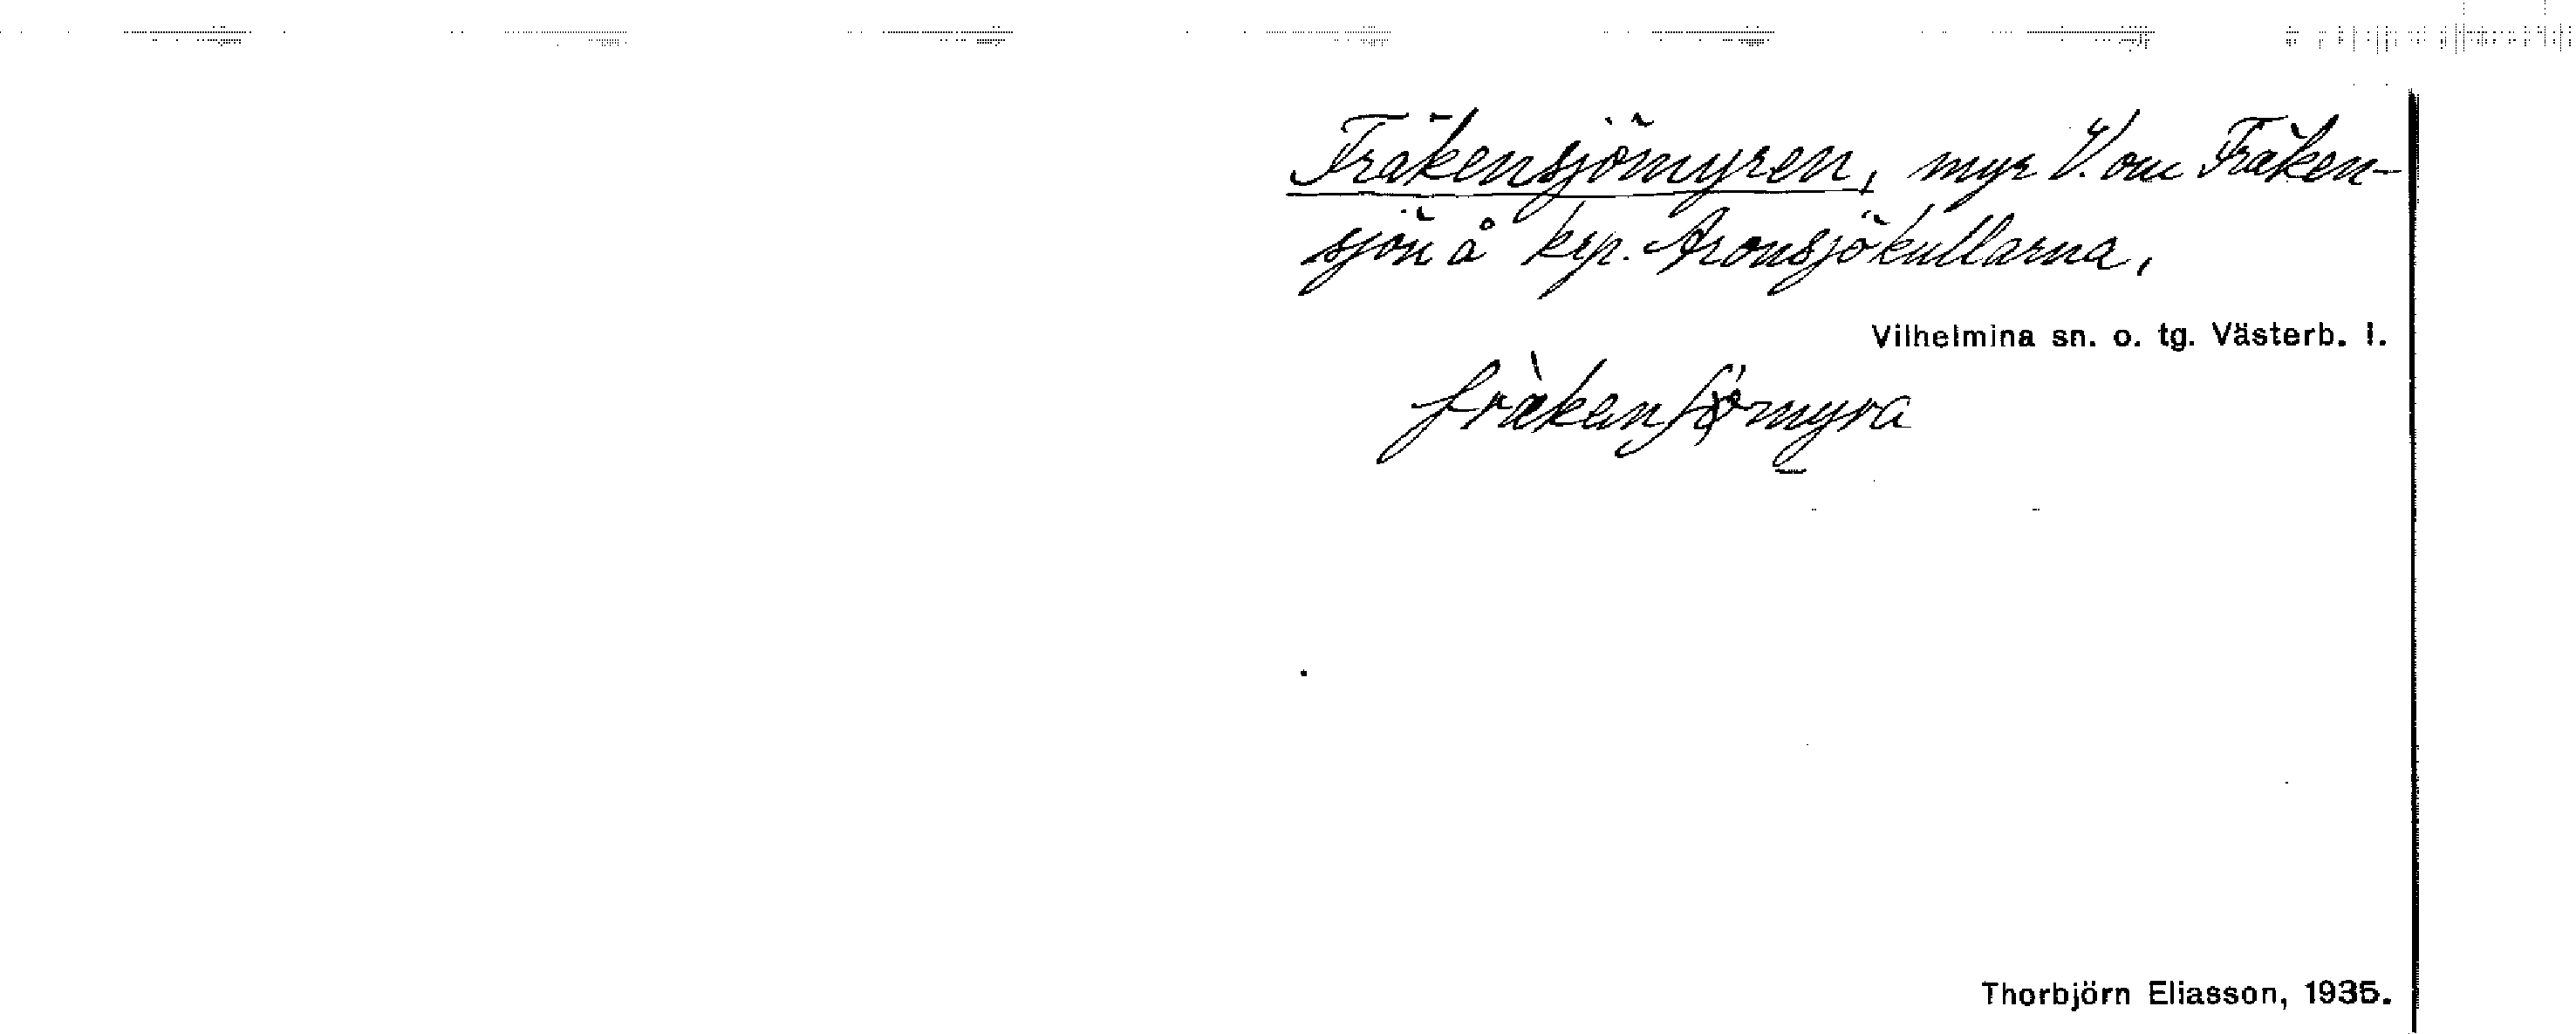 Fräkensjömyren, myr V. om Fräken-
sjön å krp. Aronsjökullarna,
Vilhelmina sn. o. tg. Västerb. l.
Thorbjörn Eliasson, 1935.